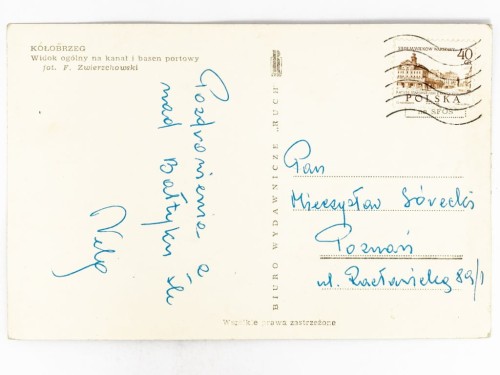 KOŁOBRZEG
Widok ogólny na kanał i basen portowy
fot. F. Zwierzchowski
Pozdrowienia z
nad Bałtyku śle
BIURO WYDAWNICZE „RUCH”
40
GR
POLSKA
na SFOS
Pan
Mieczysław Górecki
Poznań
ul. 89/1
Wszelkie prawa zastrzeżone